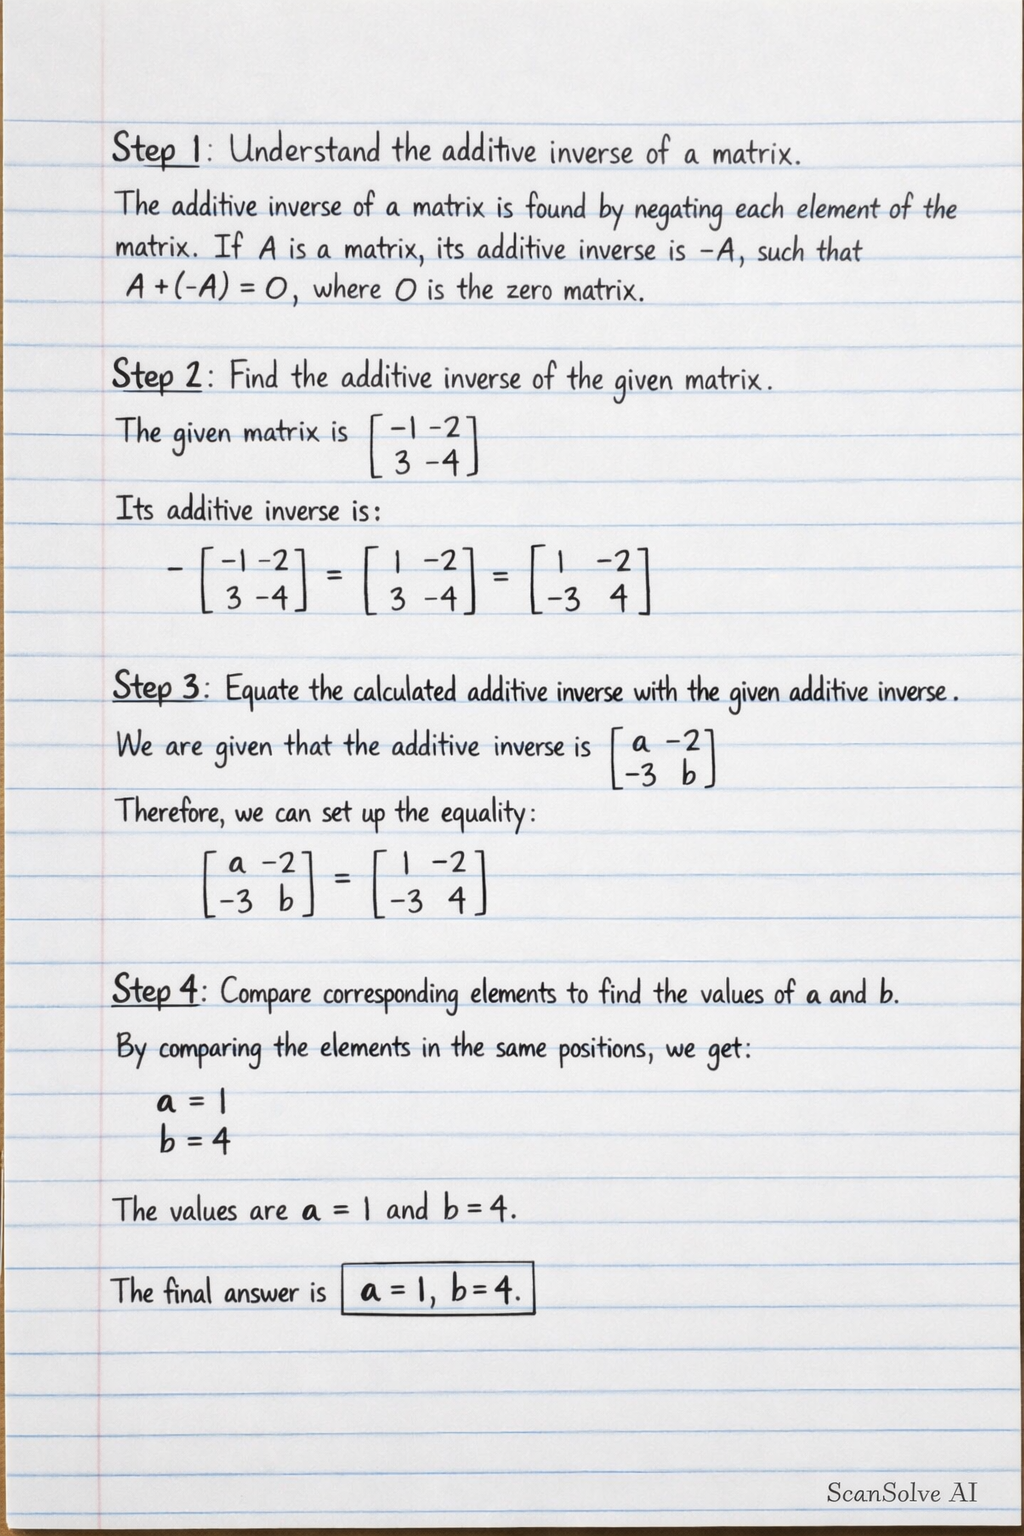 Step 1: Understand the additive inverse of a matrix.
The additive inverse of a matrix is found by negating each element of the
matrix. If A is a matrix, its additive inverse is -A, such that
A + (-A) = O, where O is the zero matrix.
Step 2: Find the additive inverse of the given matrix.
The given matrix is [-1 -2
3 -4]
Its additive inverse is:
- [-1 -2 = [1 -2 = [1 -2
3 -4] 3 -4] -3 4]
Step 3: Equate the calculated additive inverse with the given additive inverse.
We are given that the additive inverse is [a -2
-3 b]
Therefore, we can set up the equality:
[a -2 = [1 -2
-3 b] -3 4]
Step 4: Compare corresponding elements to find the values of a and b.
By comparing the elements in the same positions, we get:
a = 1
b = 4
The values are a = 1 and b = 4.
The final answer is a = 1, b = 4.
ScanSolve AI